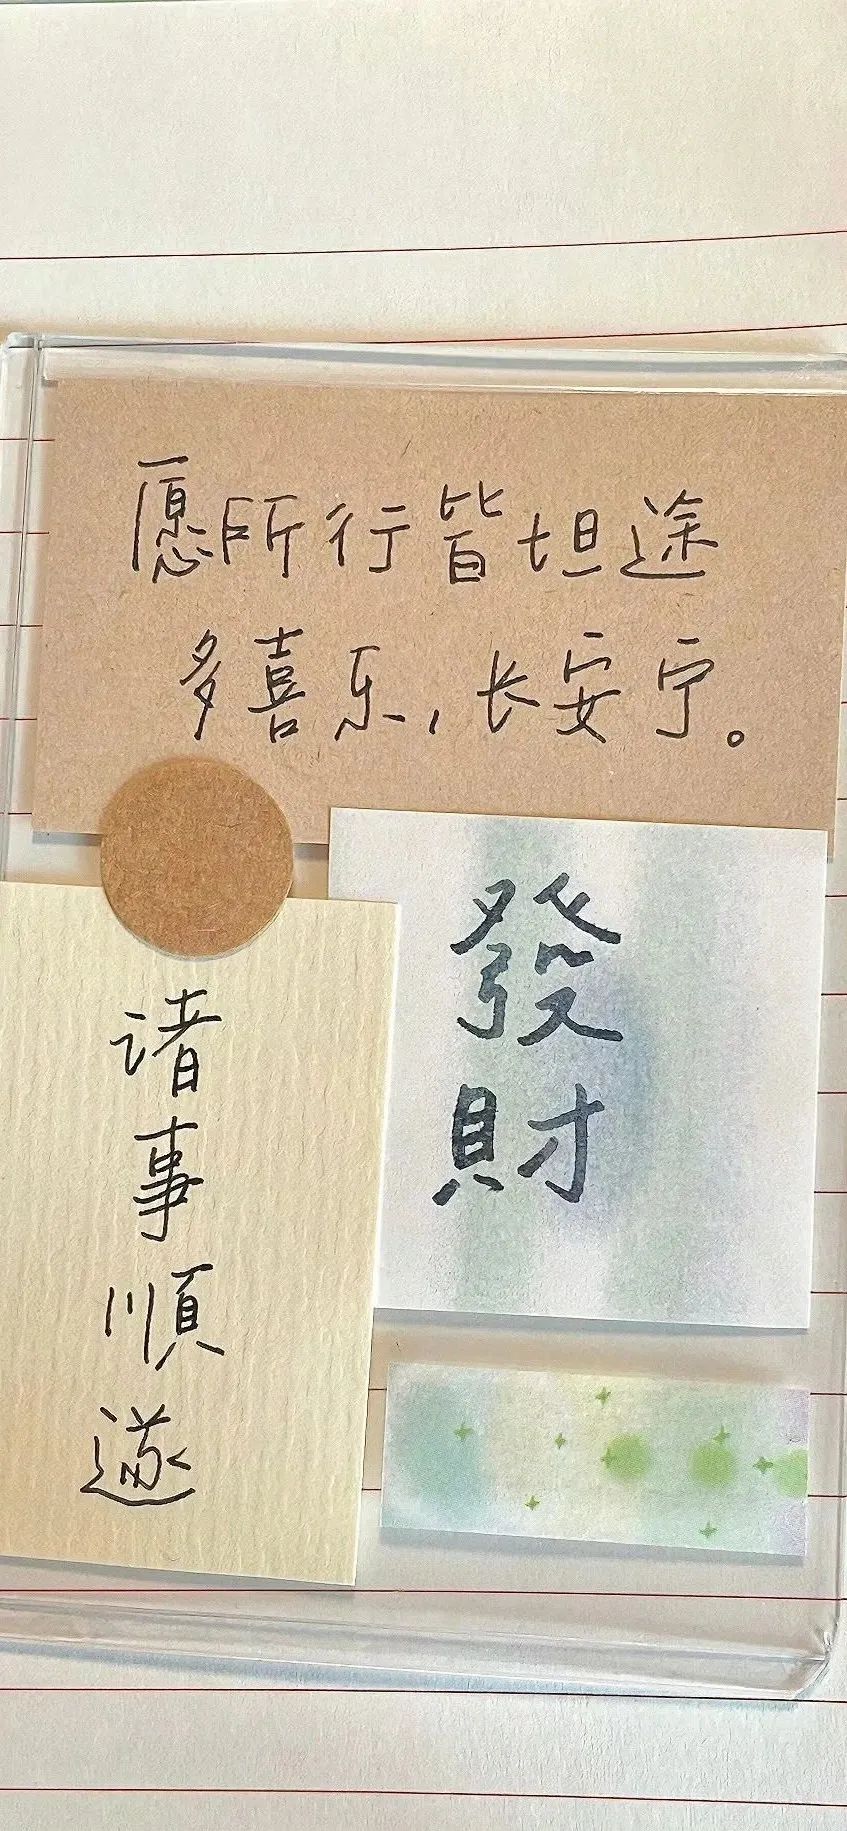 愿所行皆坦途
多喜乐，长安宁。
發財
诸事順遂